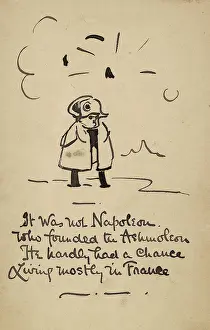 It was not Napoleon.
Who founded the Ashmolean
He hardly had a chance
Living mostly in France